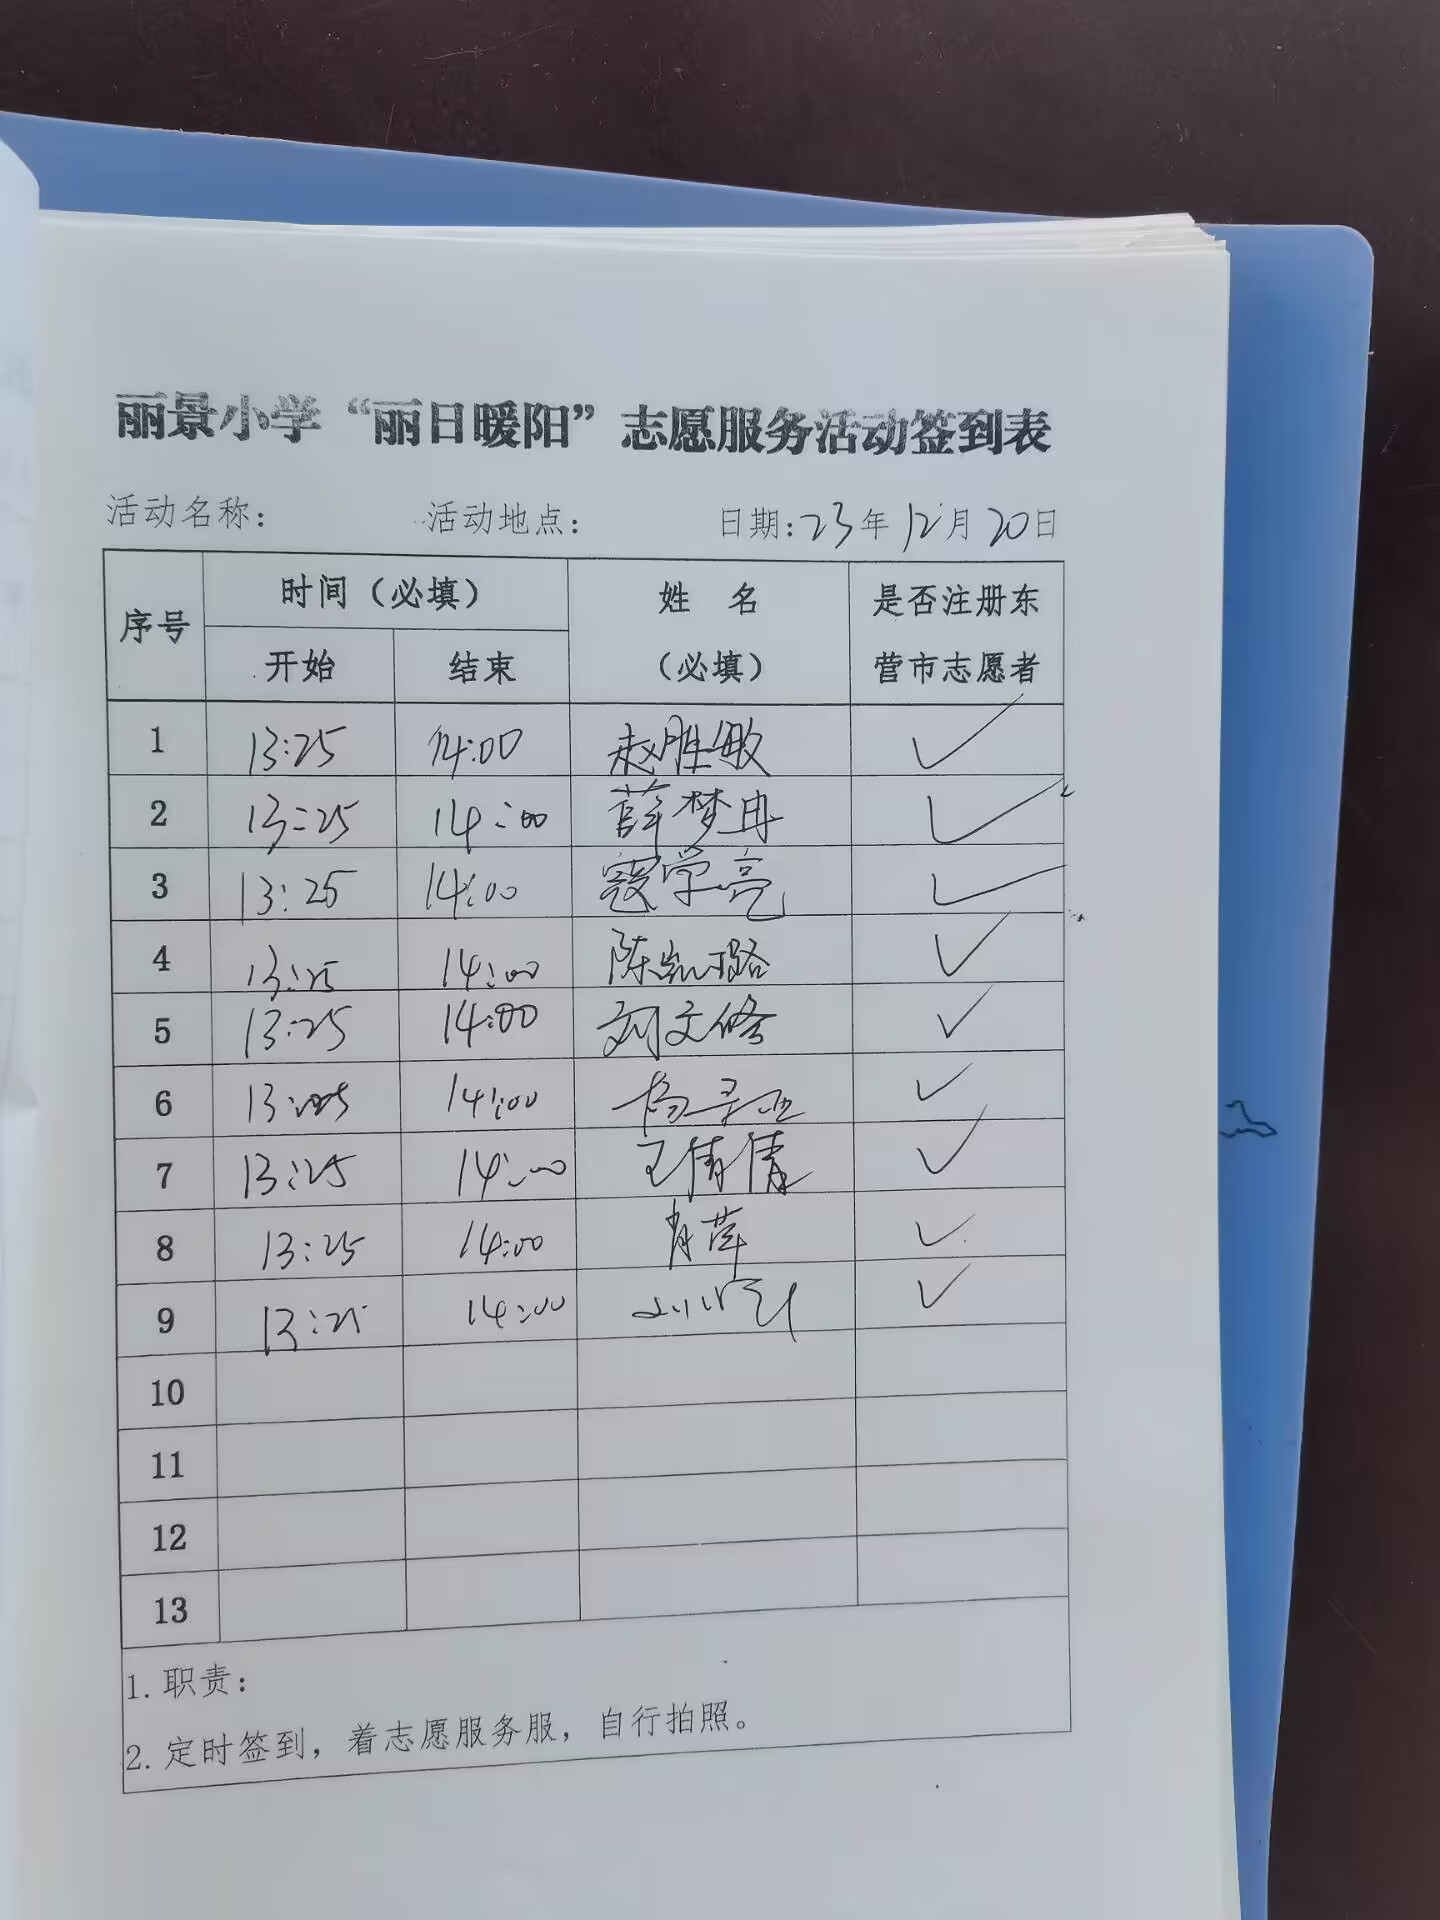 丽景小学“丽日暖阳”志愿服务活动签到表
活动名称: 活动地点: 日期:23年12月20日
序号 时间（必填） 姓 名 是否注册东
开始 结束 （必填） 营市志愿者
1 13:25 14:00 赵胜敏 ✓
2 13:25 14:00 薛梦冉 ✓
3 13:25 14:00 寇学亮 ✓
4 13:25 14:00 陈凯璐 ✓
5 13:25 14:00 刘文修 ✓
6 13:25 14:00 ✓
7 13:25 14:00 王倩倩 ✓
8 13:25 14:00 肖萍 ✓
9 13:25 14:00 ✓
10
11
12
13
1. 职责:
2. 定时签到，着志愿服务服，自行拍照。